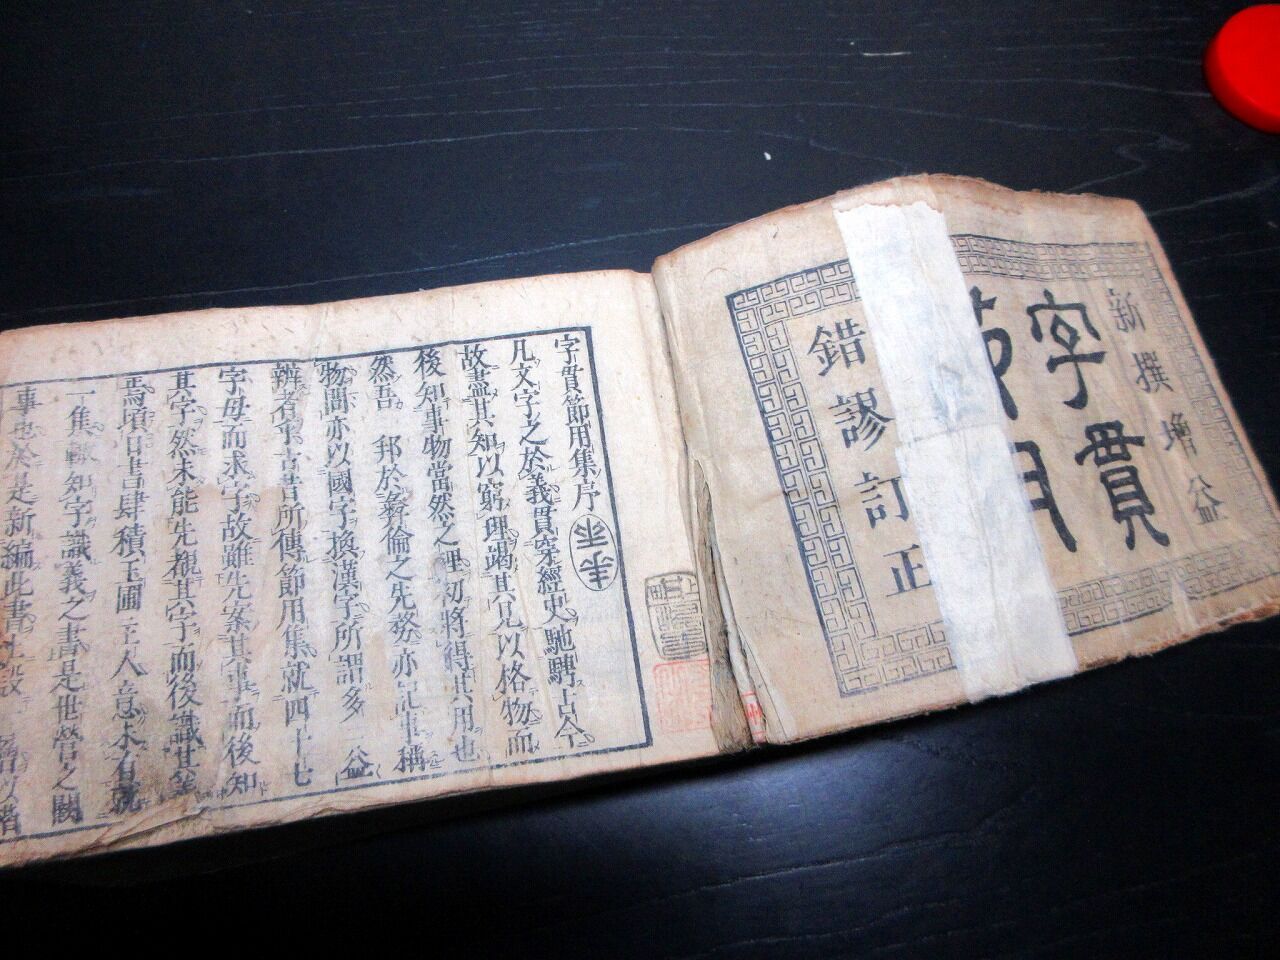 新撰増益
字貫
節用
錯謬訂正
字貫節用集序
凡文字之於義貫穿經史馳騁古今
故盡其知以窮理竭其見以格物而
後知事物當然之理初將得其用也
然吾 邦於彜倫之先務亦記車稱
物間亦以國字換漢字所謂多 益
辨者乎古昔所傳節用集就四十七
字母而求字故雖先案其事而後知
其字然未能先觀其字而後識其
焉頃日書肆積玉圃主人意未有就
一集 知字識義之書是世營之闕
事也於是新編此書